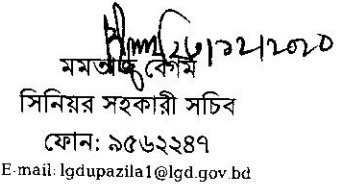 ২৮/১২/২০২০
মমতাজ বেগম
সিনিয়র সহকারী সচিব
ফোন: ৯৫৬২২৪৭
E-mail: lgdupazila1@lgd.gov.bd